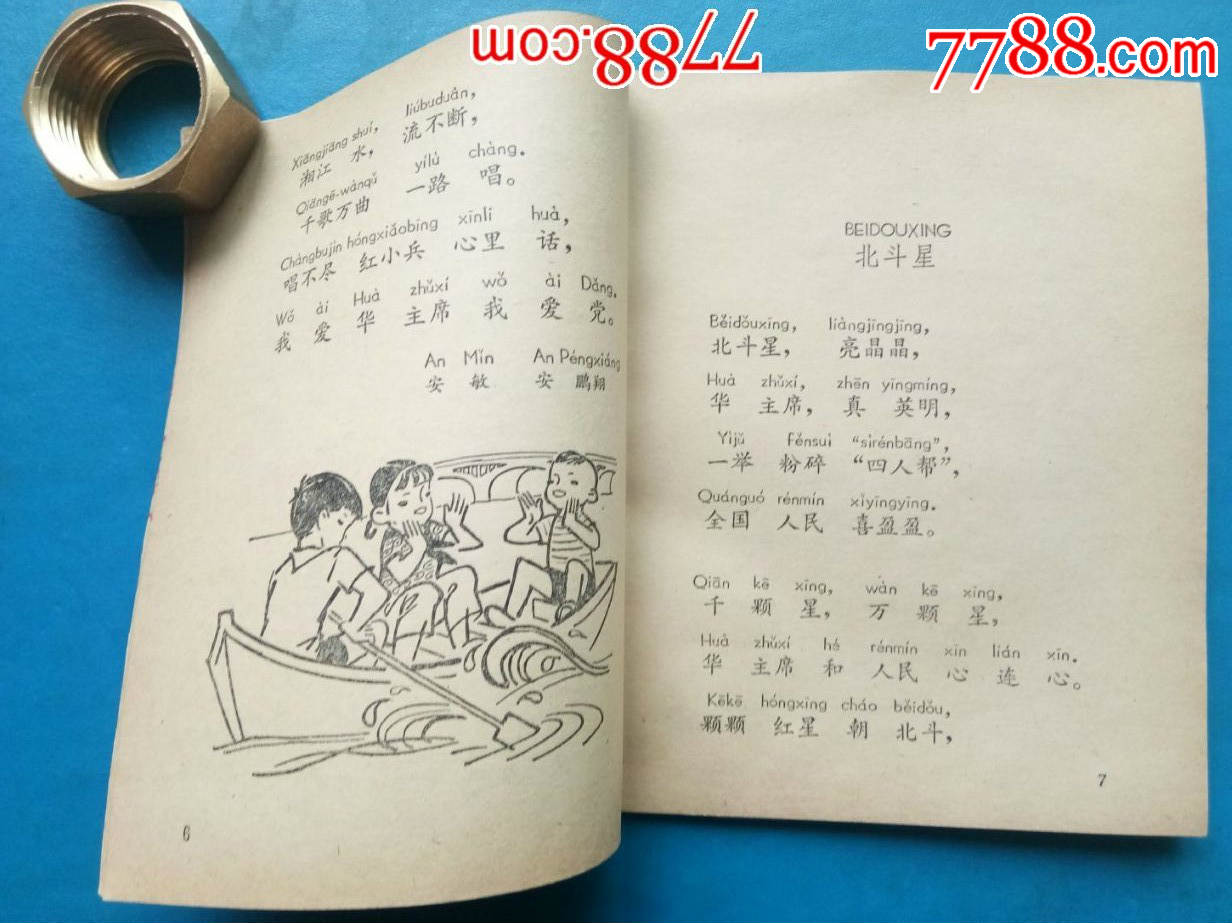 7788.com
7788.com
Xiāngjiāng shuǐ, liúbuduàn,
湘江 水, 流不断,
Qiāngē-wànqǔ yílù chàng.
千歌万曲 一路 唱。
Chàngbujìn hóngxiǎobīng xīnlǐ huà,
唱不尽 红小兵 心里 话,
Wǒ ài Huà zhǔxí wǒ ài Dǎng.
我 爱 华 主席 我 爱 党。
An Mǐn An Péngxiáng
安 敏 安 鹏翔
6
BEIDOUXING
北斗星
Běidǒuxīng, liàngjīngjīng,
北斗星, 亮晶晶,
Huà zhǔxí, zhēn yīngmíng,
华 主席, 真 英明,
Yìjǔ Fěnsuì “sìrénbāng”,
一举 粉碎 “四人帮”,
Quánguó rénmín xǐyíngyíng.
全国 人民 喜盈盈。
Qiān kē xīng, wàn kē xīng,
千 颗 星, 万 颗 星,
Huà zhǔxí hé rénmín xīn lián xīn.
华 主席 和 人民 心 连 心。
Kēkē hóngxīng cháo běidǒu,
颗颗 红星 朝 北斗,
7